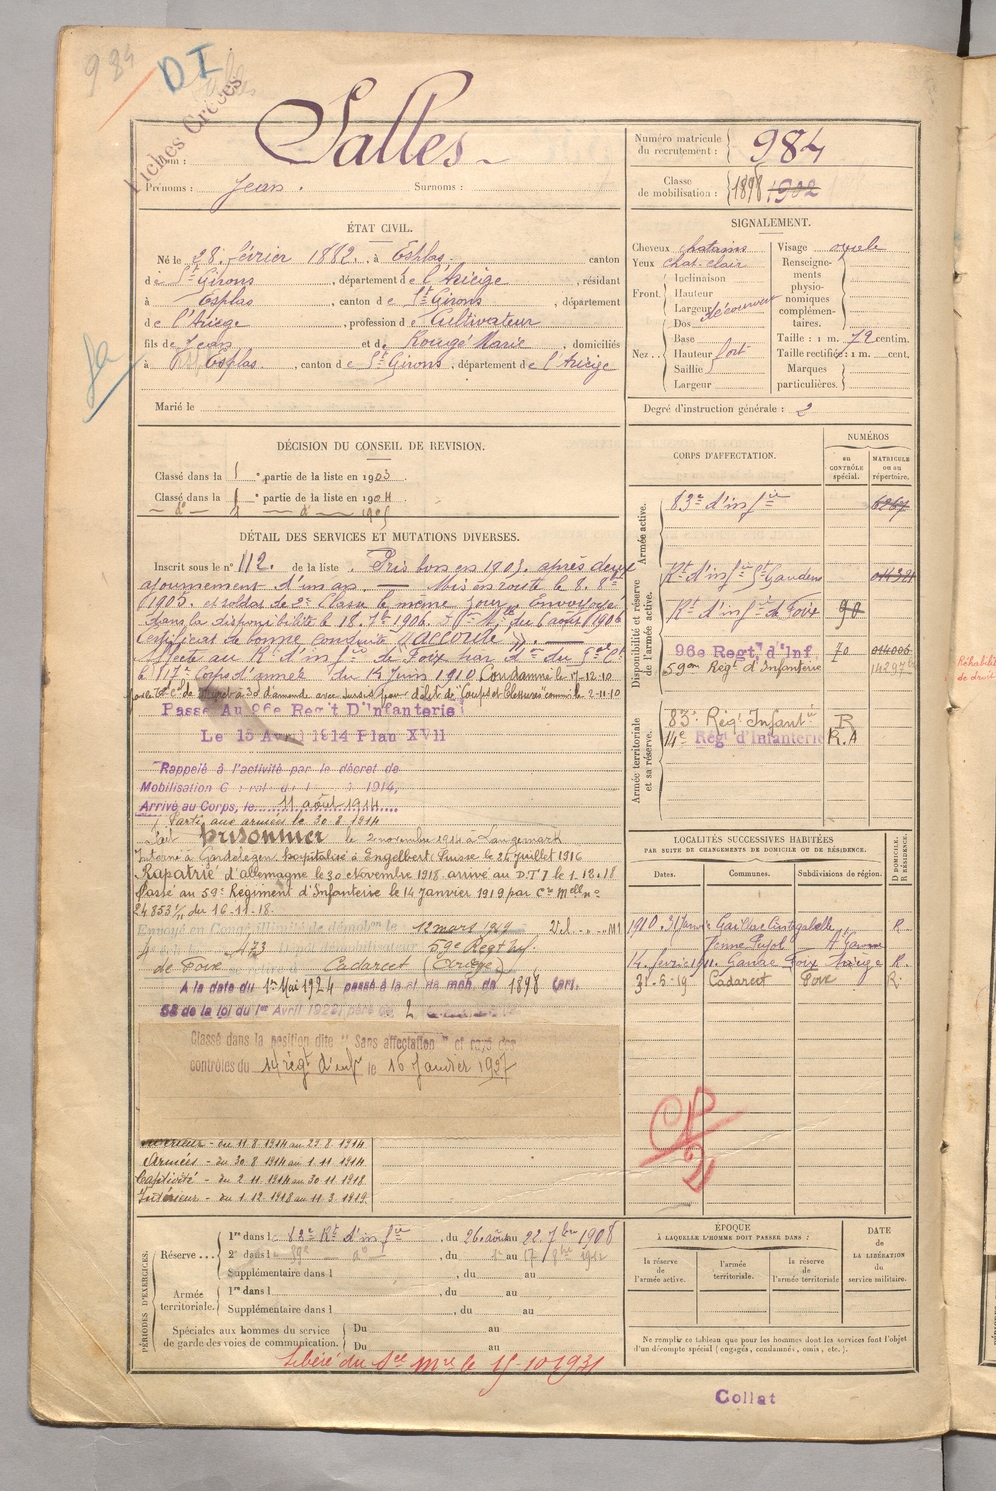 984
DI
Fiches Créées
Nom : Salles
Prénoms : Jean . Surnoms :
Numéro matricule du recrutement : 984
Classe de mobilisation : 1898 1902
ÉTAT CIVIL.
Né le 28 février 1882 . à Esplas canton
de St Girons , département de l'Ariège , résidant
à Esplas , canton de St Girons , département
de l'Ariège , profession de Cultivateur
fils de Jean et de Rougé Marie , domiciliés
à Esplas , canton de St Girons , département de l'Ariège
Marié le
SIGNALEMENT.
Cheveux chatains
Yeux chat. clair
Front. Inclinaison
Hauteur
Largeur découvert
Nez .. Dos
Base
Hauteur fort
Saillie
Largeur
Visage ovale
Renseignements physionomiques complémentaires.
Taille : 1 m. 72 centim.
Taille rectifiée : 1 m. cent.
Marques particulières.
Degré d'instruction générale : 2
DÉCISION DU CONSEIL DE REVISION.
Classé dans la 1e partie de la liste en 1903
Classé dans la 1e partie de la liste en 1904
— do — 1 — do — 1905
DÉTAIL DES SERVICES ET MUTATIONS DIVERSES.
Inscrit sous le no 112. de la liste . Pris bon en 1905. après deux
ajournement d'un an — Mis en route le 8. 8bre
1905. et soldat de 2e Classe le même jour. Envoyé
dans la disponibilité le 18. 7bre 1906.
Certificat de bonne conduite "accordé". —
Affecté au Rt d'infie de Foix par
le 17e Corps d'armée du 12 Juin 1910 Condamné le 17-12-10
à 30 d'amende avec sursis pour délit de "Coups et blessures" commis le 2-11-10
Passé Au 96e Reg't D'Infanterie
Le 15 Avril 1914 Plan XVII
Rappelé à l'activité par le décret de
Mobilisation 1914,
Arrivé au Corps, le 11 août 1914
Parti aux armées le 30 8 1914
Fait prisonnier le 2 novembre 1914 à Langemark
Interné à Gardelegen hospitalisé à Engelbert Suisse le 26 juillet 1916
Rapatrié d'Allemagne le 30 novembre 1918. arrivé au DTI le 1.12.18
Passé au 59e Régiment d'Infanterie le 14 Janvier 1919 par Ce Melle no
24853 1/11 du 16-11-18.
Envoyé en Congé illimité de démob le 12 mars 1919
473 Dépôt démobilisateur 59e Regt Inf.
de Foix se retire à Cadarcet (Ariège)
A la date du 1er Mai 1924 passé à la cl de mob. de 1898 (art.
58 de la loi du 1er Avril 1923) père de 2
Classé dans la position dite "Sans affectation" et rayé des
contrôles du 14 régt d'inf le 16 Janvier 1927
Intérieur - du 11 8 1914 au 29. 8. 1914
Armées - du 30 8 1914 au 1 11 1914
Captivité - du 2 11 1914 au 30 11 1918
Intérieur - du 1 12 1918 au 11 3 1919.
CORPS D'AFFECTATION.
NUMÉROS
au CONTRÔLE spécial.
MATRICULE ou au répertoire.
Armée active.
83e d'infie 6267
Disponibilité et réserve de l'armée active.
Rt d'infie St Gaudens
Rt d'infie de Foix 90
96e Regt d'Inf 70 014006
59me Régt d'Infanterie
Armée territoriale et sa réserve.
83e Régt Infantie R
14e Régt d'Infanterie R.A
LOCALITÉS SUCCESSIVES HABITÉES
PAR SUITE DE CHANGEMENTS DE DOMICILE OU DE RÉSIDENCE.
Dates. Communes. Subdivisions de région. D DOMICILE. R RÉSIDENCE.
1910. 31 Janv Gaillac Cintegabelle R.
H Garonne
14. février 1911. Ganac Foix Ariège R.
31-5-19 Cadarcet Foix R.
PÉRIODES D'EXERCICES.
Réserve ... 1re dans l e 83e Rt d'infie , du 26 août au 22 7bre 1908
2e dans l e 59e do , du 1er au 17 8bre 1912
Supplémentaire dans l , du au
Armée territoriale. 1re dans l , du au
Supplémentaire dans l , du au
Spéciales aux hommes du service de garde des voies de communication. Du au
Du au
ÉPOQUE
À LAQUELLE L'HOMME DOIT PASSER DANS :
la réserve de l'armée active.
l'armée territoriale.
la réserve de l'armée territoriale
DATE de LA LIBÉRATION du service militaire.
Ne remplir ce tableau que pour les hommes dont les services font l'objet
d'un décompte spécial (engagés, condamnés, omis, etc.).
Libéré du Sce Mre le 15-10 1931
Collat
Réhabilité
de droit